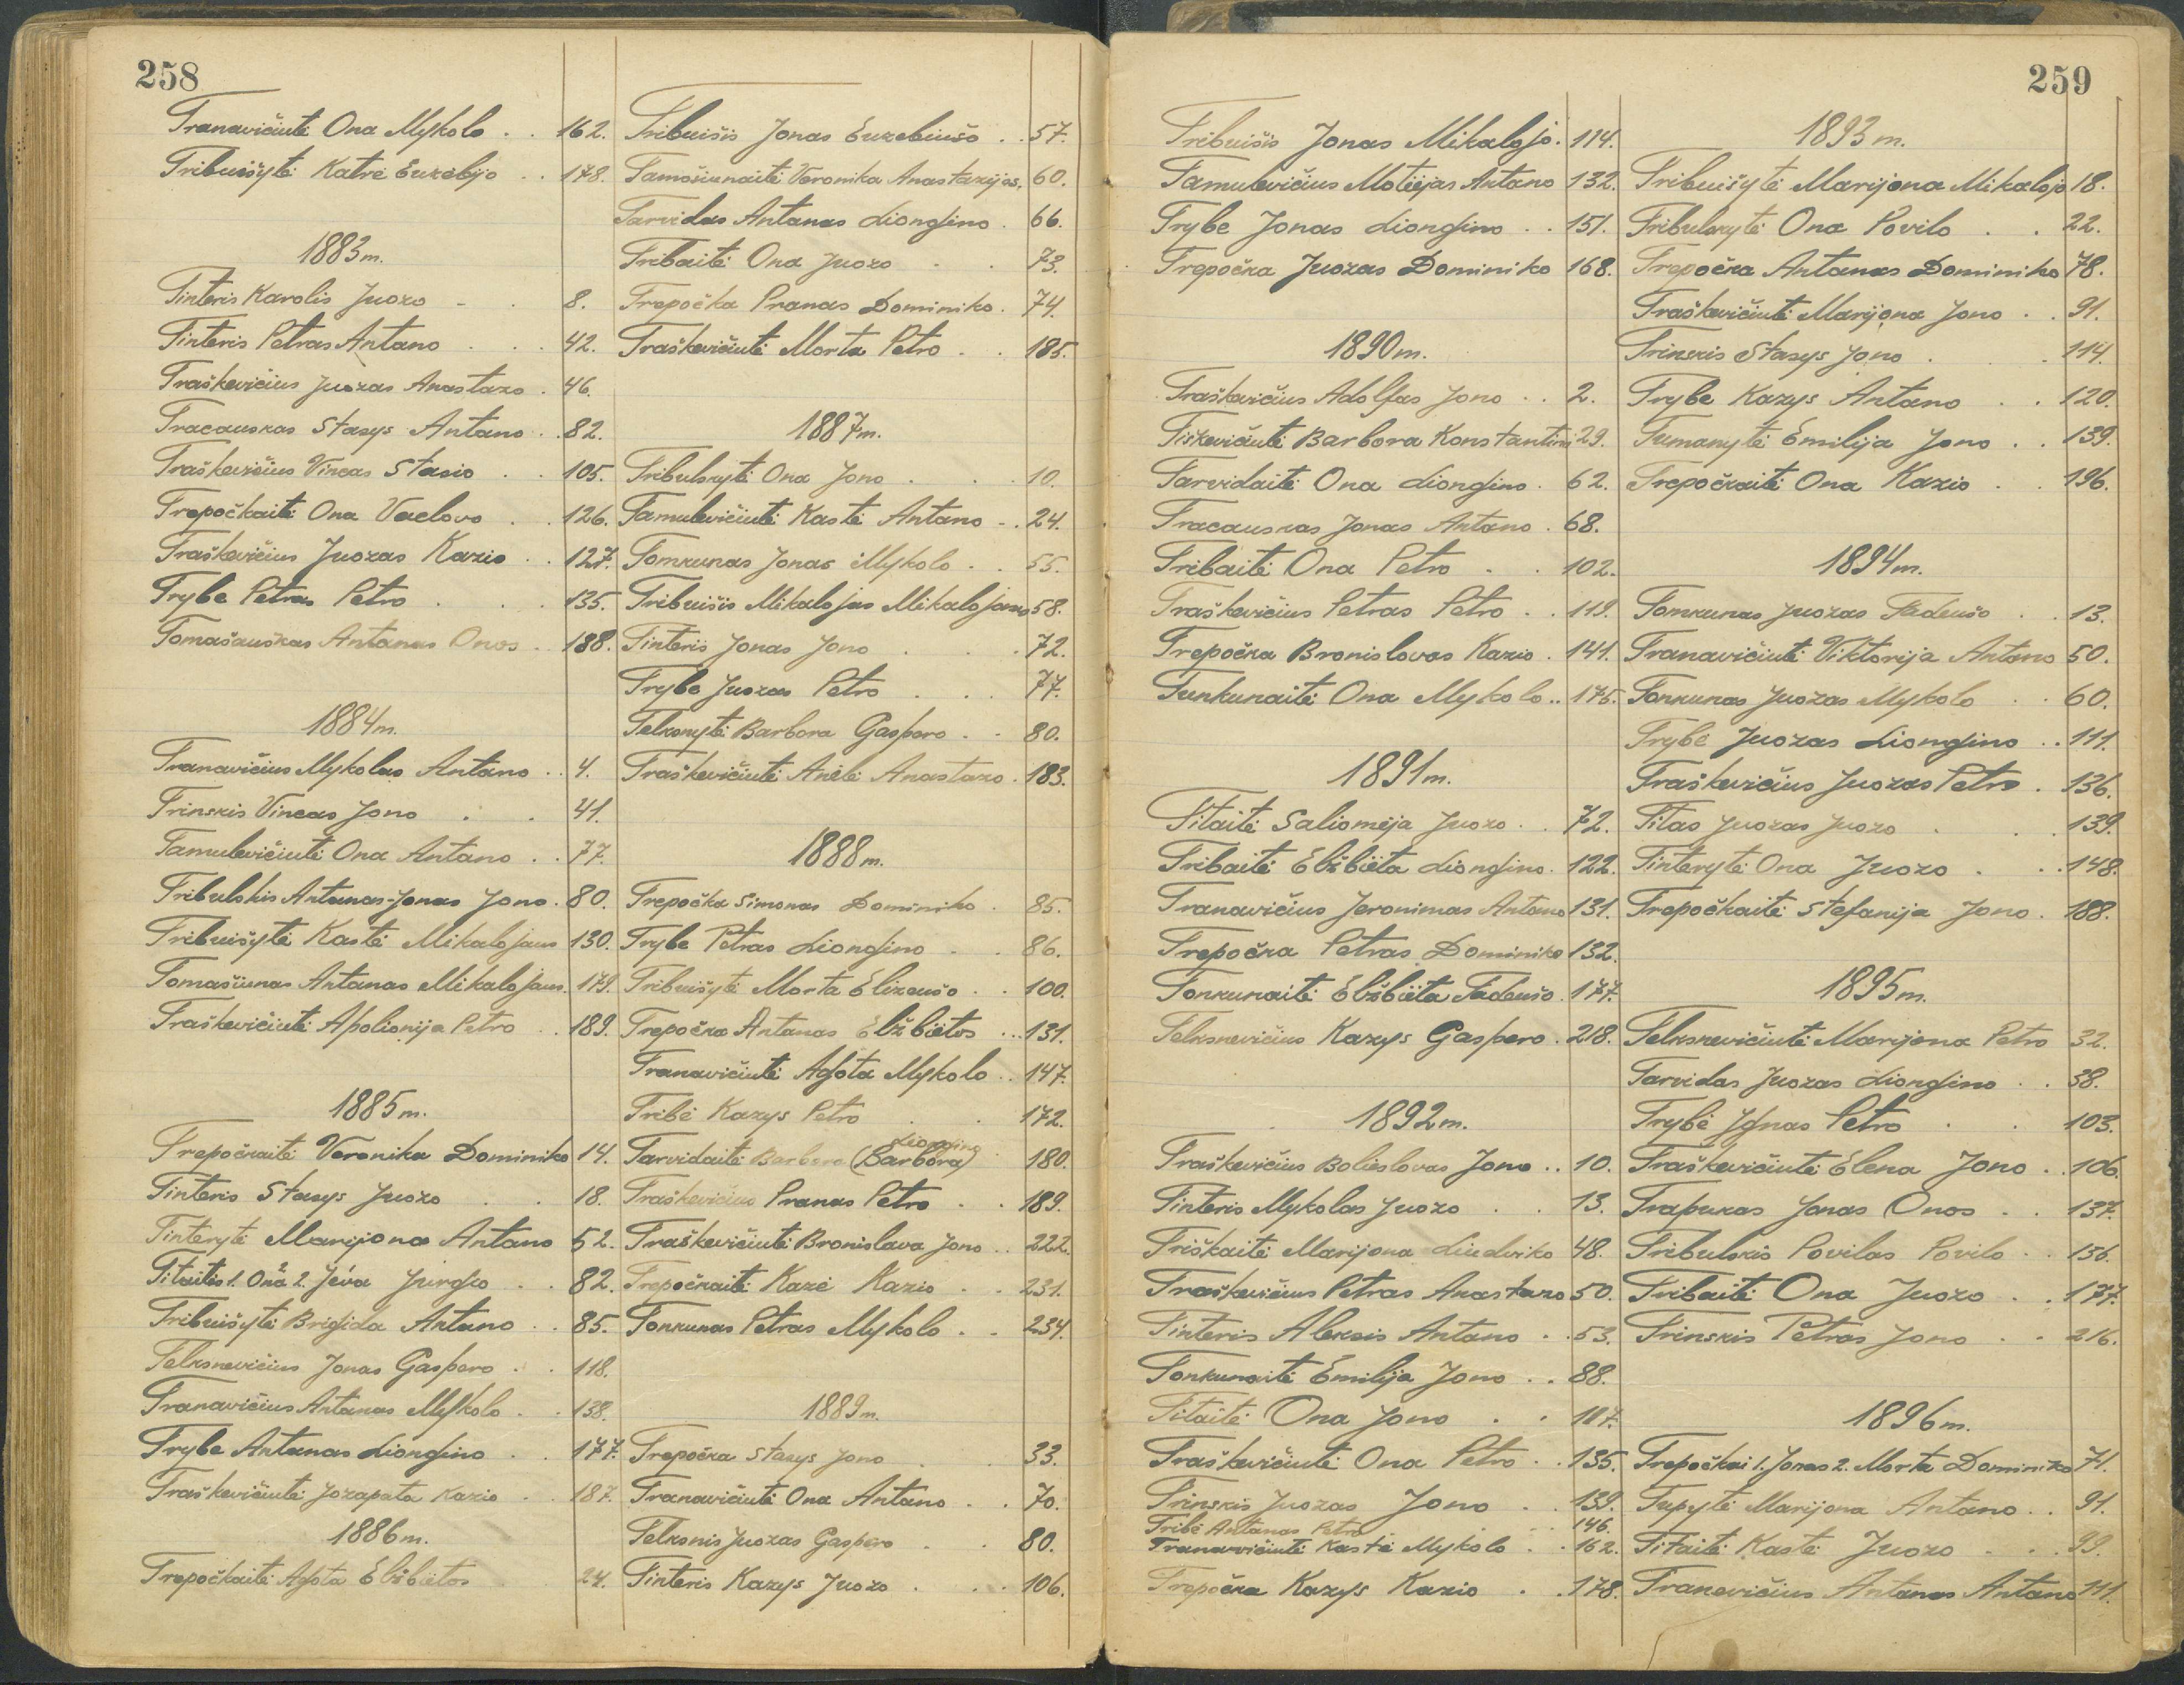 258
Tranavičiutė Ona Mykolo . . 162.
Tribuišytė Katrė Euzebijo . . 178.
1883 m.
Tinteris Karolis Juozo - . 8.
Tinteris Petras Antano . . . 42.
Traškevičius Juozas Anastazo . 46.
Tracauskas Stasys Antano . . 82.
Traškevičius Vincas Stasio . . 105.
Trepočkaitė Ona Vaclovo . . 126.
Traškevičius Juozas Kazio . . 127.
Trybe Petras Petro . . . 135.
Tomašauskas Antanas Onos . 188.
1884 m.
Tranavičius Mykolas Antano . . 4.
Trinskis Vincas Jono . . 41.
Tamulevičiutė Ona Antano . . 77.
Tribulskis Antanas-Jonas Jono . 80.
Tribuišytė Kastė Mikalojaus 130.
Tomašiunas Antanas Mikalojaus . 179.
Traškevičiutė Apolionija Petro . . 189.
1885 m.
Trepočkaitė Veronika Dominiko 14.
Tinteris Stasys Juozo . . 18.
Tinterytė Marijona Antano 52.
Titaitės 1. Ona 2. Jėva Jurgio . . 82.
Tribuišytė Brigida Antano . . 85.
Telksnevičius Jonas Gaspero . . 118.
Tranavičius Antanas Mykolo . . 138.
Trybe Antanas Liongino . . 177.
Traškevičiutė Jozapata Kazio . . 187.
1886 m.
Trepočkaitė Agota Elžbietos . 24.
Tribuišis Jonas Euzebiušo . . 57.
Tamošiunaitė Veronika Anastazijos. 60.
Tarvidas Antanas Liongino . 66.
Tribaitė Ona Juozo . . 73.
Trepočka Pranas Dominiko . 74.
Traškevičiutė Morta Petro . . 185.
1887 m.
Tribulskytė Ona Jono . . . 10.
Tamulevičiutė Kastė Antano - . 24.
Tomkunas Jonas Mykolo . . 55.
Tribuišis Mikalojas Mikalojaus 58.
Tinteris Jonas Jono . . . 72.
Trybe Juozas Petro . . . 77.
Telksnytė Barbora Gaspero . . 80.
Traškevičiutė Anėlė Anastazo . 183.
1888 m.
Trepočka Simonas Dominiko . 85.
Trybe Petras Liongino . . 86.
Tribuišytė Morta Elizeušo . . 100.
Trepočka Antanas Elžbietos . . . 131.
Tranavičiutė Agota Mykolo . . 147.
Tribė Kazys Petro . . 172.
Liongino
Tarvidaitė Barbora (Barbora) . 180.
Traškevičius Pranas Petro . . 189.
Traškevičiutė Bronislava Jono . . 222.
Trepočkaitė Kazė Kazio . . 231.
Tonkunas Petras Mykolo . . 234.
1889 m.
Trepočka Stasys Jono . . 33.
Tranavičiutė Ona Antano . . 70.
Telksnis Juozas Gaspero . . 80.
Tinteris Kazys Juozo . . . 106.
259
Tribuišis Jonas Mikalojo . 114.
Tamulevičius Motiejas Antano 132.
Trybe Jonas Liongino . . 151.
Trepočka Juozas Dominiko 168.
1890 m.
Traškevičius Adolfas Jono . . 2.
Tiškevičiutė Barbora Konstantino 29.
Tarvidaitė Ona Liongino . 62.
Tracauskas Jonas Antano . 68.
Tribaitė Ona Petro . . 102.
Traškevičius Petras Petro . . 119.
Trepočka Bronislovas Kazio . 141.
Tunkunaitė Ona Mykolo . . 175.
1891 m.
Titaitė Saliomėja Juozo . . 72.
Tribaitė Elžbieta Liongino . 122.
Tranavičius Jeronimas Antano 131.
Trepočka Petras Dominiko 132.
Tonkunaitė Elžbieta Tadeušo . 177.
Telksnevičius Kazys Gaspero . 218.
1892 m.
Traškevičius Bolieslovas Jono . . 10.
Tinteris Mykolas Juozo . . 13.
Triškaitė Marijona Liudviko 48.
Traškevičius Petras Anastazo 50.
Tinteris Aleksis Antano . . 53.
Tonkunaitė Emilija Jono . . 88.
Titaitė Ona Jono . . 107.
Traškevičiutė Ona Petro . . 135.
Trinskis Juozas Jono . . 139.
Tribė Antanas Petro . . . 146.
Tranavičiutė Kastė Mykolo . . 162.
Trepočka Kazys Kazio . . 178.
1893 m.
Tribuišytė Marijona Mikalojo 18.
Tribulskytė Ona Povilo . . 22.
Trepočka Antanas Dominiko 78.
Traškevičiutė Marijona Jono . . 91.
Trinskis Stasys Jono . . 114.
Trybe Kazys Antano . . 120.
Tumanytė Emilija Jono . . 139.
Trepočkaitė Ona Kazio . . 196.
1894 m.
Tomkunas Juozas Tadeušo . . 13.
Tranavičiutė Viktorija Antano 50.
Tonkunas Juozas Mykolo . . 60.
Trybė Juozas Liongino . . 111.
Traškevičius Juozas Petro . 136.
Titas Juozas Juozo . . . 139.
Tinterytė Ona Juozo . . . 148.
Trepočkaitė Stefanija Jono . 188.
1895 m.
Telksnevičiutė Marijona Petro 32.
Tarvidas Juozas Liongino . . 38.
Trybė Ignas Petro . . 103.
Traškevičiutė Elena Jono . . 106.
Trapukas Jonas Onos . . 137.
Tribulskis Povilas Povilo . . 156.
Tribaitė Ona Juozo . . 177.
Trinskis Petras Jono . . 216.
1896 m.
Trepočkai 1. Jonas 2. Morta Dominiko 71.
Tupytė Marijona Antano . . 91.
Titaitė Kastė Juozo . . . 99.
Tranevičius Antanas Antano 111.